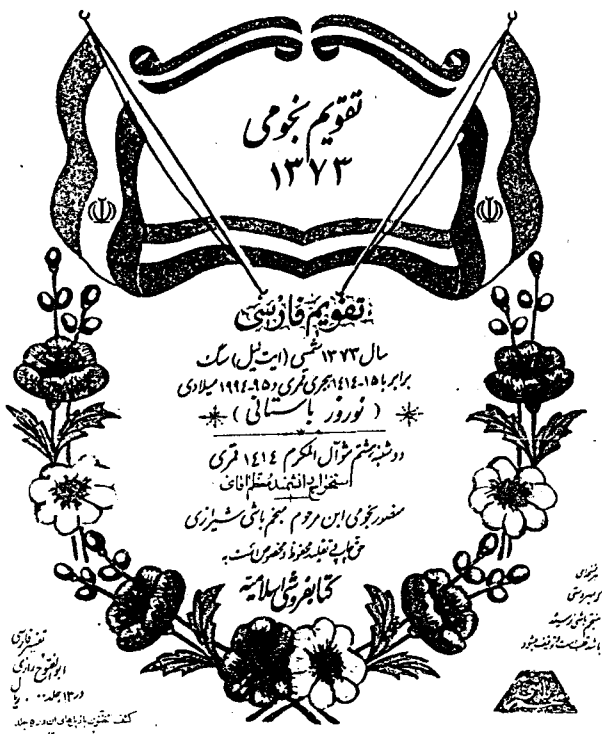 تقویم نجومی
۱۳۷۳
تقویم فارسی
سال ۱۳۷۳ شمسی (ایت ئیل) سگ
برابر با ۱۵-۱۴۱۴ هجری قمری و ۹۵-۱۹۹۴ میلادی
(نوروز باستانی)
دوشنبه هشتم شوال المکرم ۱۴۱۴ قمری
استخراج دانشمند معظم آقای
منصور نجومی ابن مرحوم منجم باشی شیرازی
حق چاپ و تقلید محفوظ و مخصوص است به
کتابفروشی اسلامیه
تفسیر فارسی
ابوالفتوح رازی
در ۱۳ جلد ریال
کشف
جلد
منجم باشی نرسیده